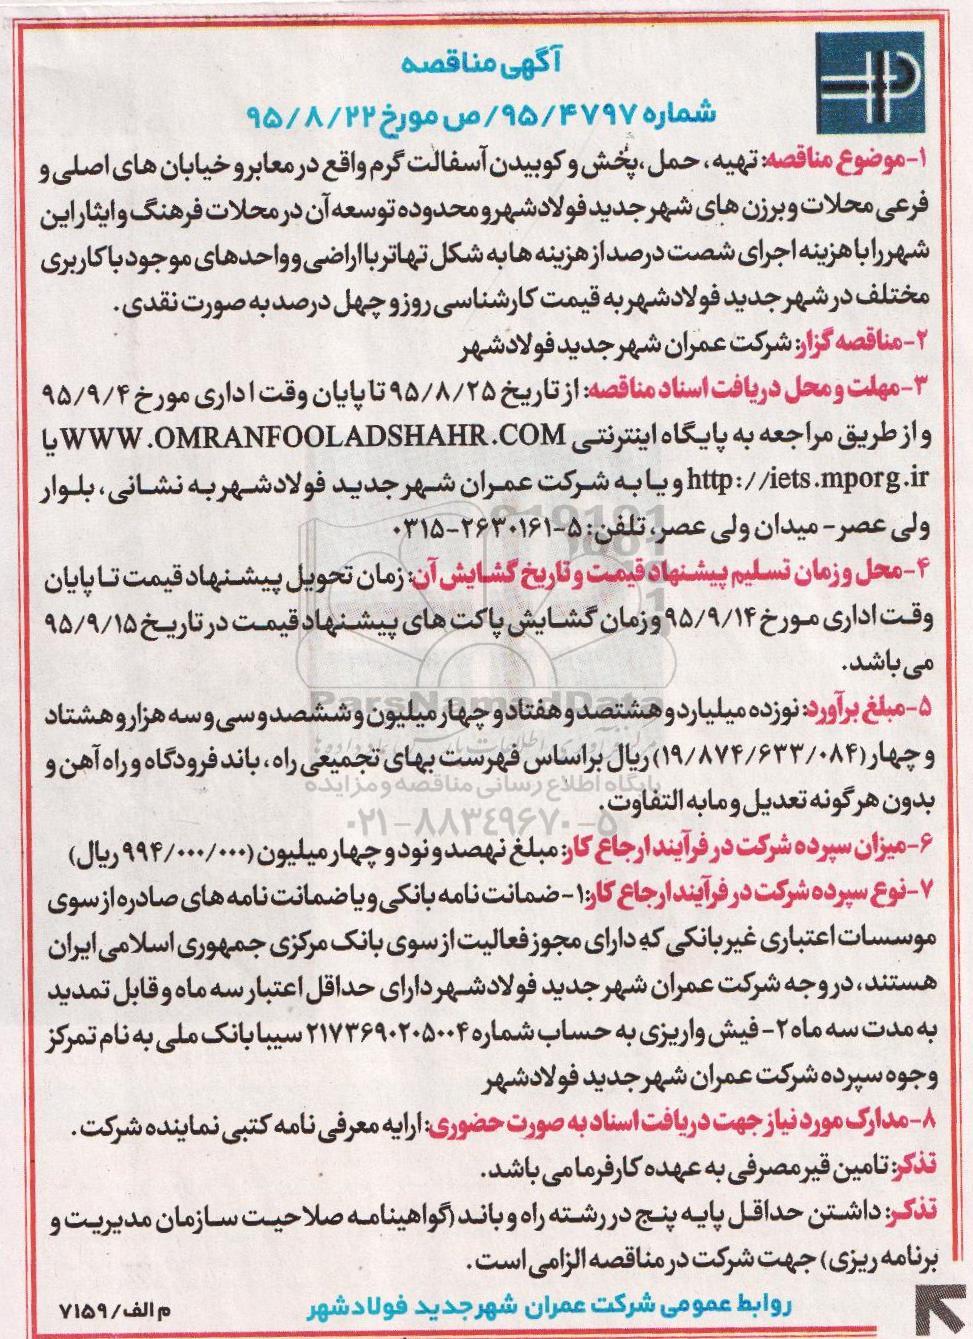 آگهی مناقصه
شماره ۹۵/۴۷۹۷/ص مورخ ۹۵/۸/۲۲
۱-موضوع مناقصه: تهیه، حمل، پخش و کوبیدن آسفالت گرم واقع در معابر و خیابان های اصلی و
فرعی محلات و برزن های شهر جدید فولادشهر و محدوده توسعه آن در محلات فرهنگ و ایثار این
شهر را با هزینه اجرای شصت درصد از هزینه ها به شکل تهاتر با اراضی و واحدهای موجود با کاربری
مختلف در شهر جدید فولادشهر به قیمت کارشناسی روز و چهل درصد به صورت نقدی.
۲-مناقصه گزار: شرکت عمران شهر جدید فولادشهر
۳-مهلت و محل دریافت اسناد مناقصه: از تاریخ ۹۵/۸/۲۵ تا پایان وقت اداری مورخ ۹۵/۹/۴
و از طریق مراجعه به پایگاه اینترنتی WWW.OMRANFOOLADSHAHR.COM یا
http://iets.mporg.ir و یا به شرکت عمران شهر جدید فولادشهر به نشانی، بلوار
ولی عصر- میدان ولی عصر، تلفن: ۵-۲۶۳۰۱۶۱-۰۳۱۵
۴-محل و زمان تسلیم پیشنهاد قیمت و تاریخ گشایش آن: زمان تحویل پیشنهاد قیمت تا پایان
وقت اداری مورخ ۹۵/۹/۱۴ و زمان گشایش پاکت های پیشنهاد قیمت در تاریخ ۹۵/۹/۱۵
می باشد.
ParsNamadData
۵-مبلغ برآورد: نوزده میلیارد و هشتصد و هفتاد و چهار میلیون و ششصد و سی و سه هزار و هشتاد
و چهار (۱۹/۸۷۴/۶۳۳/۰۸۴) ریال براساس فهرست بهای تجمیعی راه، باند فرودگاه و راه آهن و
پایگاه اطلاع رسانی مناقصه و مزایده
بدون هرگونه تعدیل و مابه التفاوت.
۰۲۱-۸۸۳۴۹۶۷۰-۵
۶-میزان سپرده شرکت در فرآیند ارجاع کار: مبلغ نهصد و نود و چهار میلیون (۹۹۴/۰۰۰/۰۰۰ ریال)
۷-نوع سپرده شرکت در فرآیند ارجاع کار: ۱- ضمانت نامه بانکی و یا ضمانت نامه های صادره از سوی
موسسات اعتباری غیربانکی که دارای مجوز فعالیت از سوی بانک مرکزی جمهوری اسلامی ایران
هستند، در وجه شرکت عمران شهر جدید فولادشهر دارای حداقل اعتبار سه ماه و قابل تمدید
به مدت سه ماه ۲- فیش واریزی به حساب شماره ۲۱۷۳۶۹۰۲۰۵۰۰۴ سیبا بانک ملی به نام تمرکز
وجوه سپرده شرکت عمران شهر جدید فولادشهر
۸-مدارک مورد نیاز جهت دریافت اسناد به صورت حضوری: ارایه معرفی نامه کتبی نماینده شرکت.
تذکر: تامین قیر مصرفی به عهده کارفرما می باشد.
تذکر: داشتن حداقل پایه پنج در رشته راه و باند (گواهینامه صلاحیت سازمان مدیریت و
برنامه ریزی) جهت شرکت در مناقصه الزامی است.
روابط عمومی شرکت عمران شهر جدید فولادشهر
م الف/۷۱۵۹